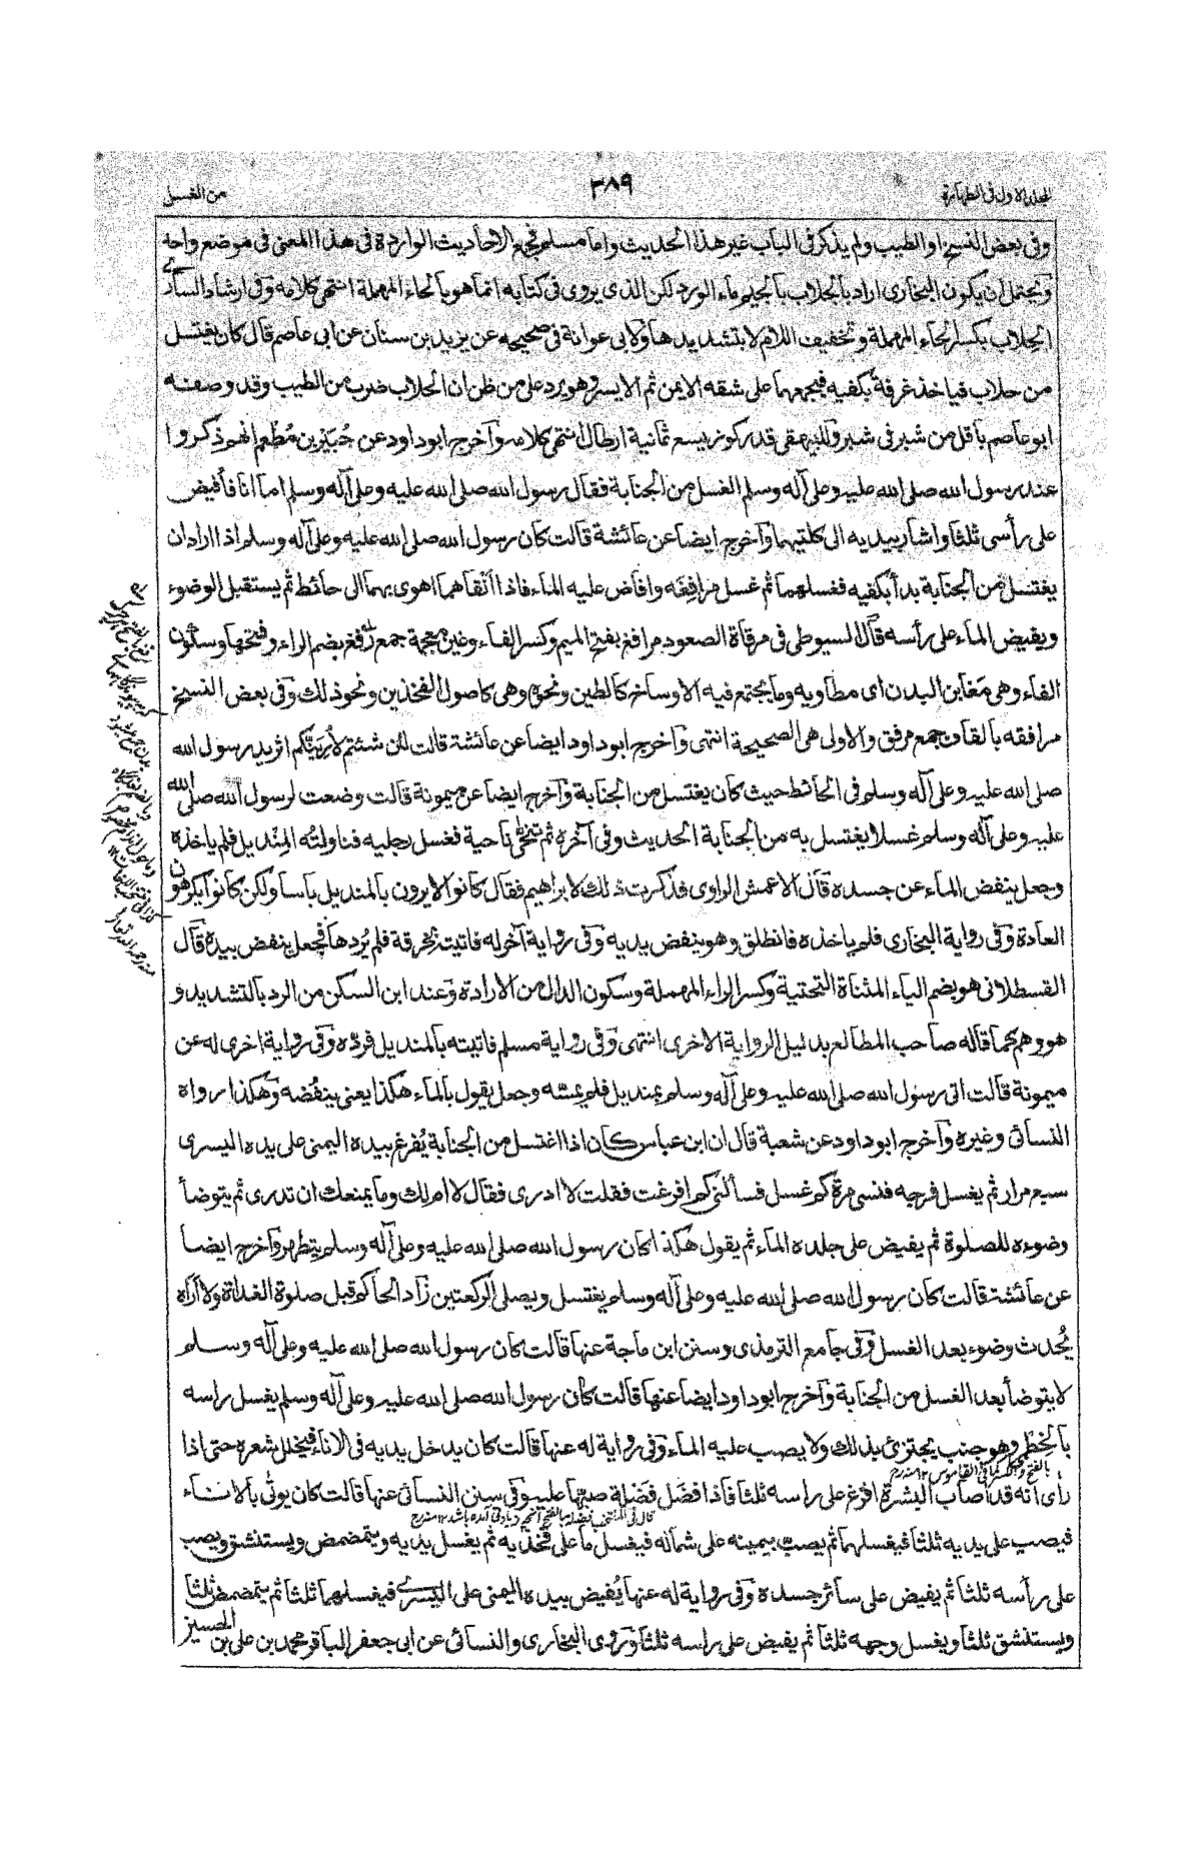 المجلد الاول فى الطهارة
٣٨٩
من الغسل
وفى بعض النسخ او الطيب ولم يذكر فى الباب غير هذا الحديث واما مسلم فجمع الاحاديث الواردة فى هذا المعنى فى موضع واحد
ويحتمل ان يكون البخارى اراد بالجلاب بالجيم ماء الورد لكن الذى يروى فى كتابه انما هو بالحاء المهملة انتهى كلامه وفى ارشاد السارى
الحلاب بكسر الحاء المهملة وتخفيف اللام لا بتشديدها ولابى عوانة فى صحيحه عن يزيد بن سنان عن ابى عاصم قال كان يغتسل
من حلاب فياخذ غرفة بكفيه فيجعلهما على شقه الايمن ثم الايسر وهو يرد على من ظن ان الحلاب ضرب من الطيب وقد وصفه
ابو عاصم باقل من شبر فى شبر وللبيهقى قدر كوز يسع ثمانية ارطال انتهى كلامه وآخرج ابو داود عن جُبَيْر بن مُطْعم انهم ذكروا
عند رسول الله صلى الله عليه وعلى آله وسلم الغسل من الجنابة فقال رسول الله صلى الله عليه وعلى آله وسلم اما انا فأفيض
على رأسى ثلثا واشار بيديه الى كلتيهما وآخرج ايضا عن عائشة قالت كان رسول الله صلى الله عليه وعلى آله وسلم اذا اراد ان
يغتسل من الجنابة بدأ بكفيه فغسلهما ثم غسل مرافغه وافاض عليه الماء فاذا انقاهما اهوى بهما الى حائط ثم يستقبل الوضوء
ويفيض الماء على رأسه قال السيوطى فى مرقاة الصعود مرافغ بفتح الميم وكسر الفاء وغين معجمة جمع رفغ بضم الراء وفتحها وسكون
الفاء وهى مَغابن البدن اى مطاويه وما يجتمع فيه الاوساخ كالطين ونحوه وهى كاصول الفخذين ونحو ذلك وفى بعض النسخ
مرافقه بالقاف جمع مرفق والاولى هى الصحيحة انتهى وآخرج ابو داود ايضا عن عائشة قالت لئن شئتم لأُرِيَنَّكم اثر يد رسول الله
صلى الله عليه وعلى آله وسلم فى الحائط حيث كان يغتسل من الجنابة وآخرج ايضا عن ميمونة قالت وضعت لرسول الله صلى الله
عليه وعلى آله وسلم غسلا يغتسل به من الجنابة الحديث وفى آخره ثم تنحّى ناحية فغسل رجليه فناولتُه المِنْديل فلم ياخذه
وجعل ينفض الماء عن جسده قال الاعمش الراوى فذكرت ذلك لابراهيم فقال كانوا لا يرون بالمنديل بأسا ولكن كانوا يكرهون
العادة وفى رواية البخارى فلم ياخذه فانطلق وهو ينفض يديه وفى رواية آخر له فاتيته بخرقة فلم يُردها فجعل ينفض بيده قال
القسطلانى هو بضم الياء المثناة التحتية وكسر الراء المهملة وسكون الدال من الارادة وعند ابن السكن من الرد بالتشديد و
هو وهم كما قاله صاحب المطالع بدليل الرواية الاخرى انتهى وفى رواية مسلم فاتيته بالمنديل فردّه وفى رواية اخرى له عن
ميمونة قالت اتى رسول الله صلى الله عليه وعلى آله وسلم بمنديل فلم يمسّه وجعل يقول بالماء هكذا يعنى ينفُضه وهكذا رواه
النسائى وغيره وآخرج ابو داود عن شعبة قال ان ابن عباس كان اذا اغتسل من الجنابة يُفرغ بيده اليمنى على يده اليسرى
سبع مرار ثم يغسل فرجه فنسى مرة كم غسل فسألنى كم افرغت فقلت لا ادرى فقال لا ام لك وما يمنعك ان تدرى ثم يتوضأ
وضوءه للصلوة ثم يفيض على جلده الماء ثم يقول هكذا كان رسول الله صلى الله عليه وعلى آله وسلم يتطهر وآخرج ايضا
عن عائشة قالت كان رسول الله صلى الله عليه وعلى آله وسلم يغتسل ويصلى الركعتين زاد الحاكم قبل صلوة الغداة ولا آراه
يُحدث وضوء بعد الغسل وفى جامع الترمذى وسنن ابن ماجة عنها قالت كان رسول الله صلى الله عليه وعلى آله وسلم
لا يتوضأ بعد الغسل من الجنابة وآخرج ابو داود ايضا عنها قالت كان رسول الله صلى الله عليه وعلى آله وسلم يغسل راسه
بالخِطْمى وهو جنب يجتزى بذلك ولا يصب عليه الماء وفى رواية له عنها قالت كان يدخل يديه فى الاناء فيخلل شعره حتى اذا
بالفتح كما فى القاموس ١٢ منه رح
رأى انه قد اصاب البشرة افرغ على راسه ثلثا فاذا فضَل فَضْلة صبّها عليه وفى سنن النسائى عنها قالت كان يوتى بالاناء
قال فى المنتخب فضله بالفتح آنچه زيادتى آمده باشد ١٢ منه رح
فيصب على يديه ثلثا فيغسلهما ثم يصب بيمينه على شماله فيغسل ما على فخذيه ثم يغسل يديه ويتمضمض ويستنشق ويصب
على رأسه ثلثا ثم يفيض على سائر جسده وفى رواية له عنها يُفيض بيده اليمنى على اليسرى فيغسلهما ثلثا ثم يتمضمض ثلثا
ويستنشق ثلثا ويغسل وجهه ثلثا ثم يفيض على راسه ثلثا وروى البخارى والنسائى عن ابى جعفر الباقر محمد بن على بن الحسين